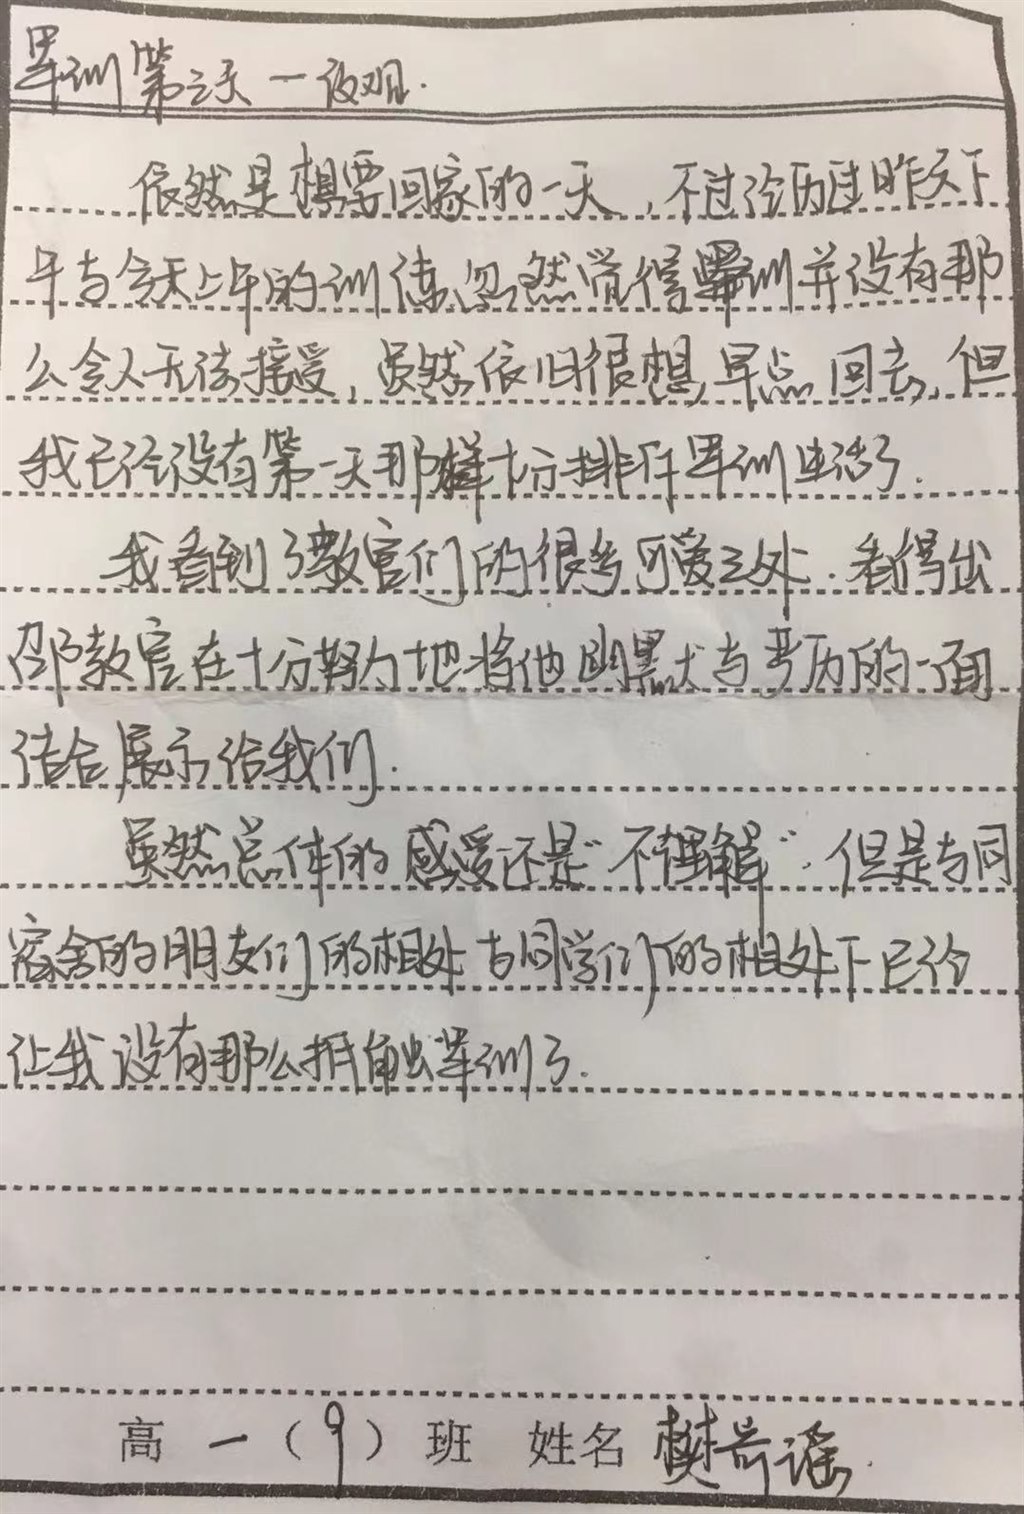 军训第二天一夜观.
依然是想要回家的一天,不过经历过昨天下
午与今天上午的训练,忽然觉得军训并没有那
么令人无法接受,虽然依旧很想早点回去,但
我已经没有第一天那样十分排斥军训生活了.
我看到了教官们的很多可爱之处.看得出
邵教官在十分努力地将他幽默与严厉的一面
结合展示给我们.
虽然总体的感受还是“不理解”.但是与同
宿舍的朋友们的相处与同学们的相处下已经
让我没有那么抵触军训了.
高一(9)班 姓名 樊 谣